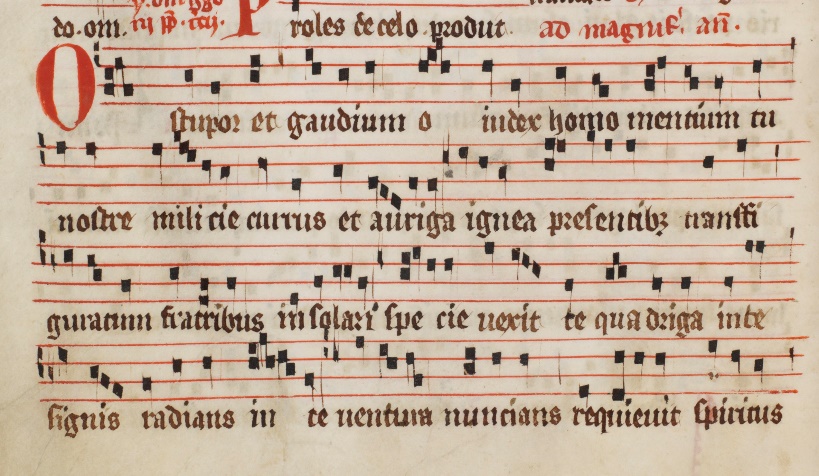 do. om. roles de celo produt. ad magnif. an.
O stupor et gaudium o iudex homo mentium tu
nostre milicie currus et auriga ignea presentibz transfi
guratum fratribus in solari spe cie uexit te quadriga inte
signis radians in te uentura nuncians requieuit spiritus